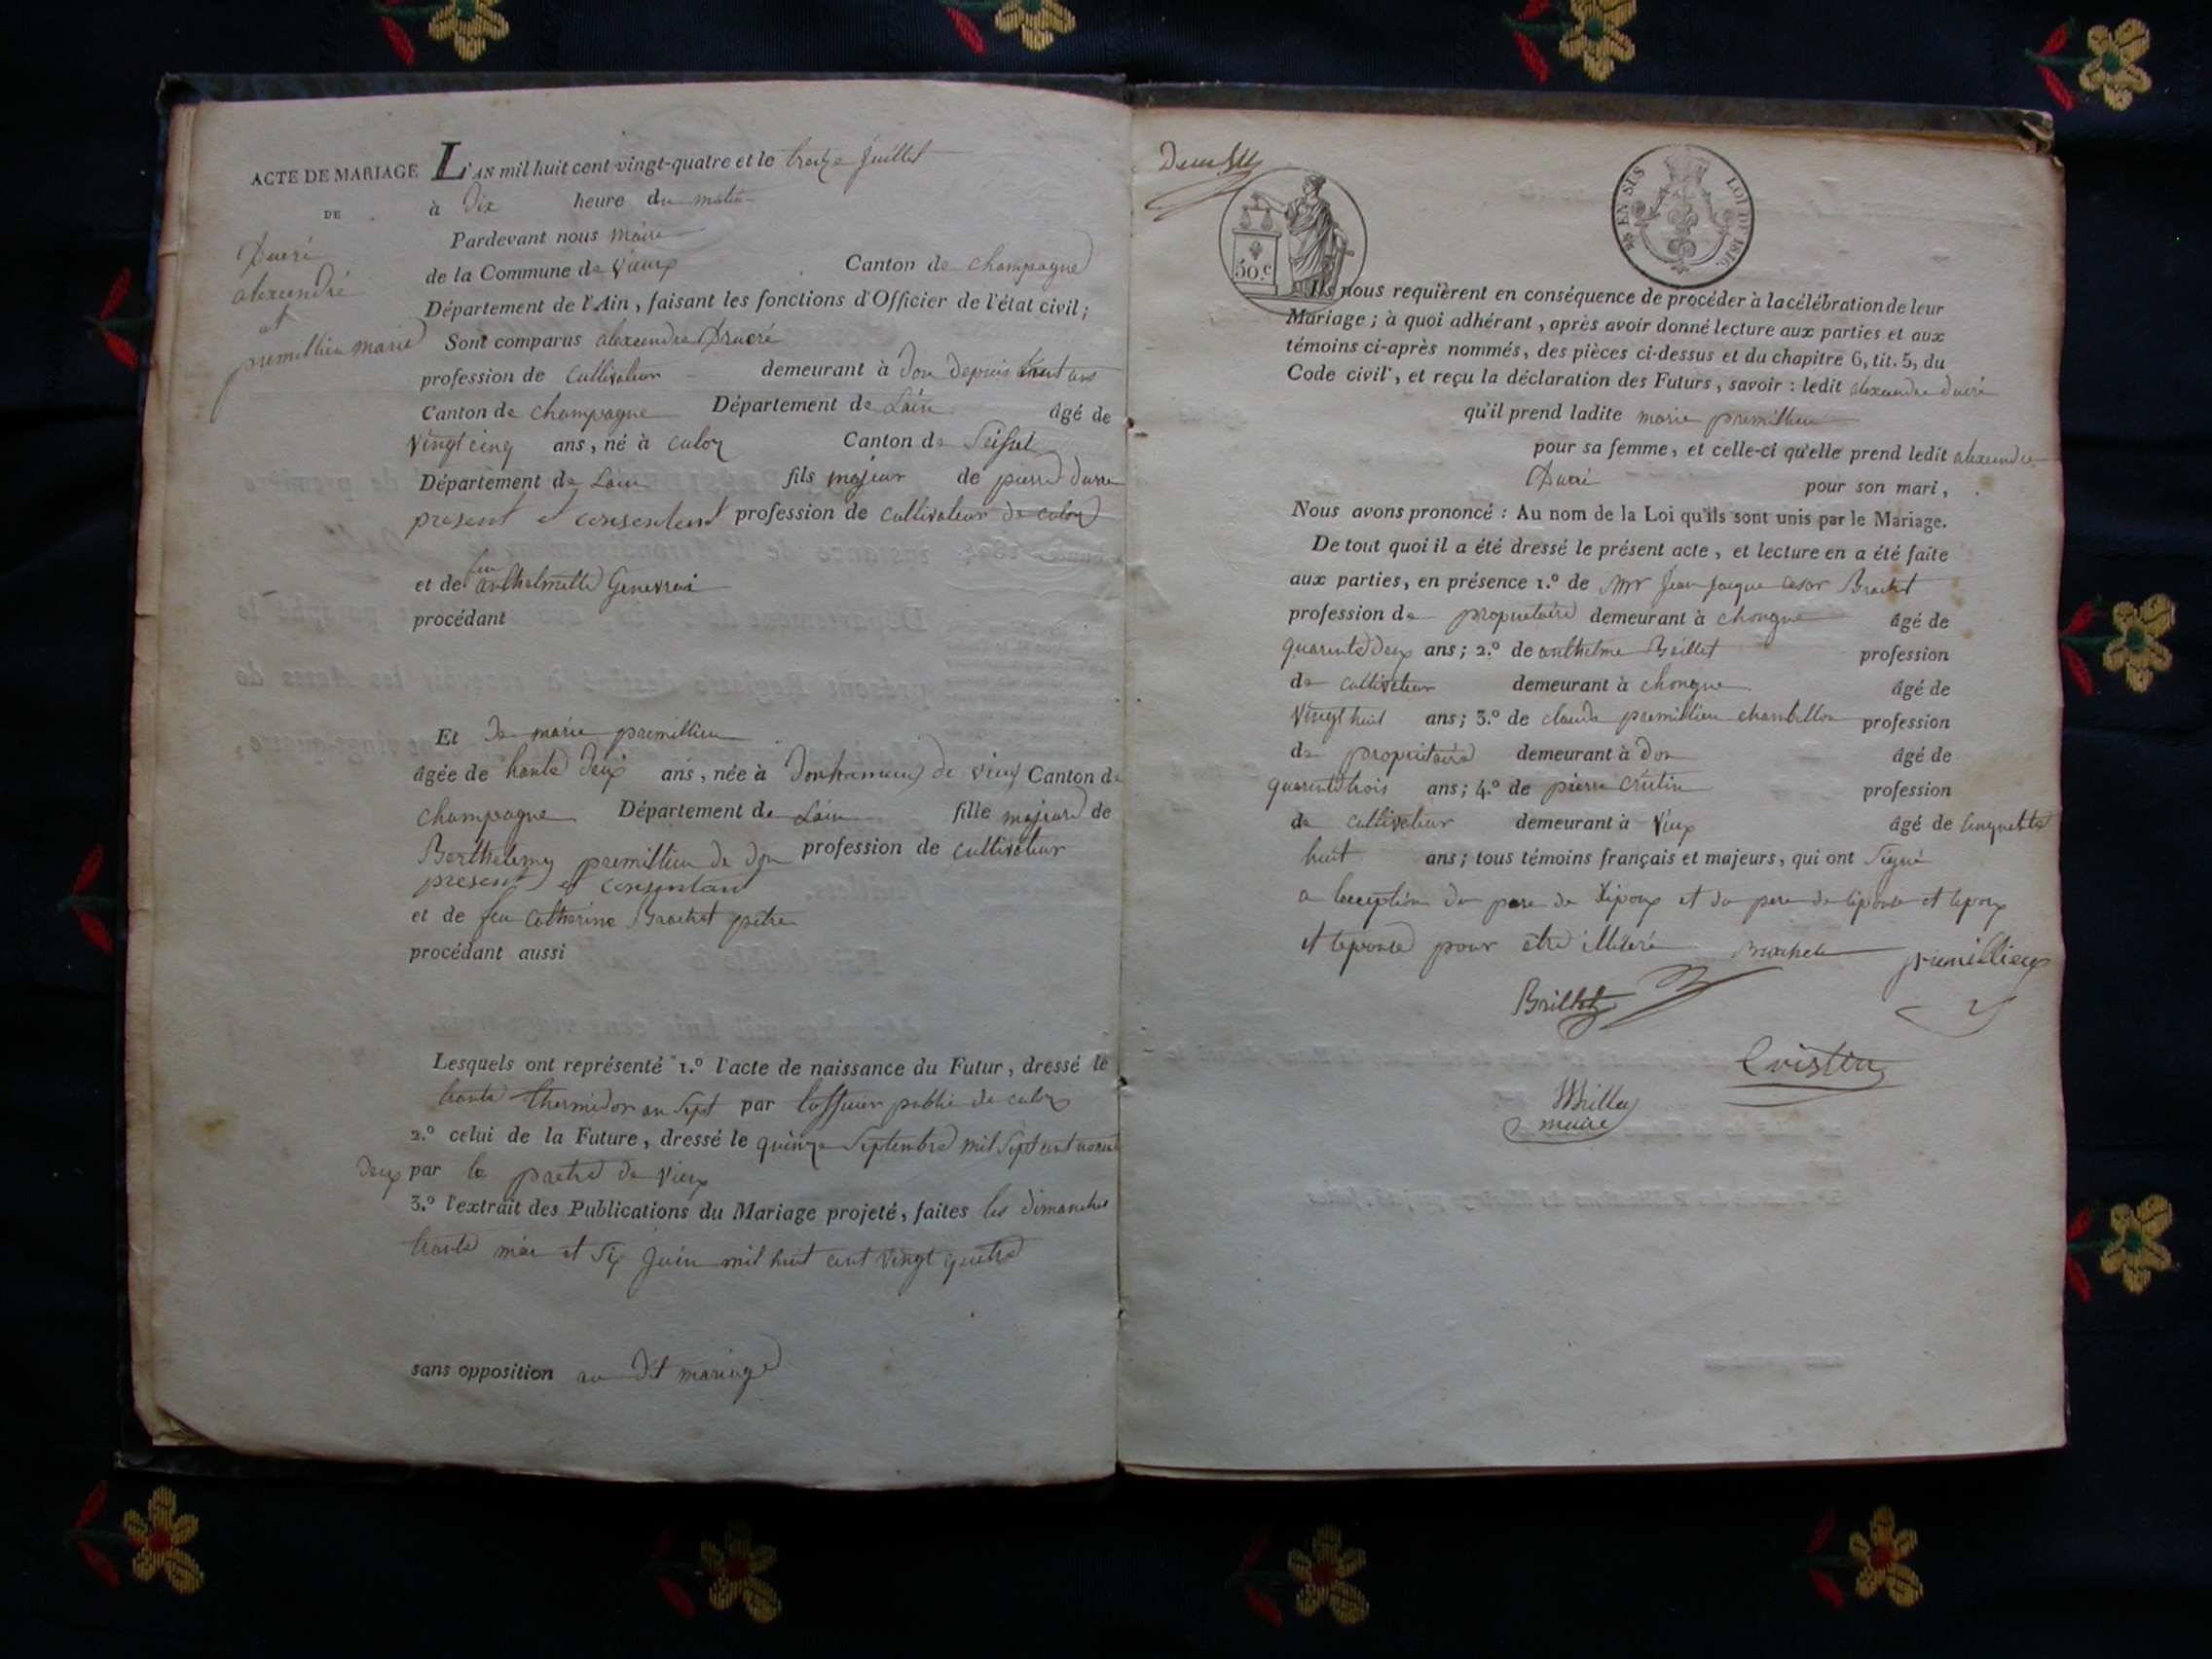 ACTE DE MARIAGE
DE
Ducré
alexendre
et
premillieu marie
L'AN mil huit cent vingt-quatre et le treize juillet
à Dix heure du matin
Pardevant nous maire
de la Commune de Vieux Canton de champagne
Département de l'Ain, faisant les fonctions d'Officier de l'état civil;
Sont comparus alexendre Ducré
profession de cultivateur demeurant à Don depuis huit ans
Canton de champagne Département de Lain âgé de
vingt cinq ans, né à culoz Canton de Seissel
Département de Lain fils majeur de pierre
present et consentent profession de cultivateur de culoz
et de feu anthelmette
procédant
Et de marie premillieu
âgée de trente deux ans, née à Don hameau de vieux Canton de
champagne Département de Lain fille majeure de
Berthelemy premillieu de don profession de cultivateur
present et consentant
et de feu Catherine Brachet
procédant aussi
Lesquels ont représenté 1.º l'acte de naissance du Futur, dressé le
trente thermidor an sept par lofficier public de culoz
2.º celui de la Future, dressé le quinze Septembre mil sept cent nonante
deux par le pretre de vieux
3.º l'extrait des Publications du Mariage projeté, faites les dimanches
trente mai et six juin mil huit cent vingt quatre
sans opposition au dit mariage
50.c
EN SUS
LOI DE 1816.
Ils nous requièrent en conséquence de procéder à la célébration de leur
Mariage; à quoi adhérant, après avoir donné lecture aux parties et aux
témoins ci-après nommés, des pièces ci-dessus et du chapitre 6, tit. 5, du
Code civil, et reçu la déclaration des Futurs, savoir: ledit alexendre ducré
qu'il prend ladite marie premillieu
pour sa femme, et celle-ci qu'elle prend ledit alexendre
Ducré pour son mari,
Nous avons prononcé: Au nom de la Loi qu'ils sont unis par le Mariage.
De tout quoi il a été dressé le présent acte, et lecture en a été faite
aux parties, en présence 1.º de Mr Jean jacque cesar Brachet
profession de propriétaire demeurant à chongne âgé de
quarente deux ans; 2.º de anthelme Brillet profession
de cultivateur demeurant à chongne âgé de
vingt huit ans; 3.º de claude premillieu profession
de propriétaire demeurant à Don âgé de
quarente trois ans; 4.º de pierre profession
de cultivateur demeurant à Vieux âgé de cinquante
huit ans; tous témoins français et majeurs, qui ont signé
a lexception du pere de lépoux et du pere de lépouse et lepoux
et lepouse pour etre illiteré
Brachet premillieux
Brillet
Cristin
maire